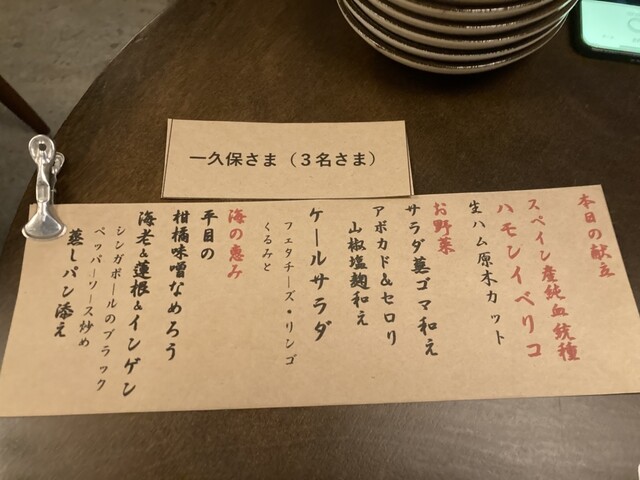 一久保さま（３名さま）
本日の献立
スペイン産純血統種
ハモンイベリコ
生ハム原木カット
お野菜
サラダ墓ゴマ和え
アボカド＆セロリ
山椒塩麹和え
ケールサラダ
フェタチーズ・リンゴ
くるみと
海の恵み
平目の
柑橘味噌なめろう
海老＆蓮根＆インゲン
シンガポールのブラック
ペッパーソース炒め
蒸しパン添え